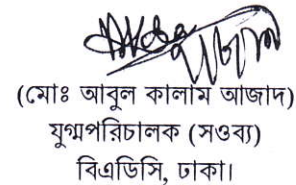 (মোঃ আবুল কালাম আজাদ)
যুগ্মপরিচালক (সওব্য)
বিএডিসি, ঢাকা।